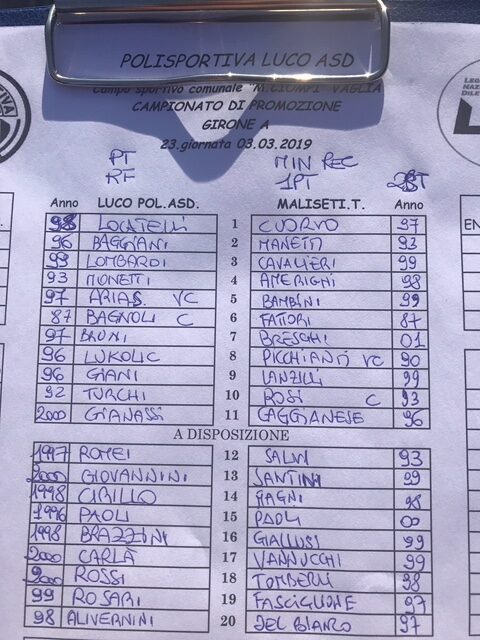 POLISPORTIVA LUCO ASD
Campo sportivo comunale "M.CIOMPI" VAGLIA
CAMPIONATO DI PROMOZIONE
GIRONE A
23.giornata 03.03.2019
PT MIN REC
RF 1PT 2ST
Anno LUCO POL.ASD. MALISETI.T. Anno
98 LOCATELLI 1 CUORVO 97
96 BAGGIANI 2 MANETTI 93
99 LOMBARDI 3 CAVALIERI 99
93 MONETTI 4 AMERIGHI 98
97 ARIAS VC 5 BAMBINI 99
87 BAGNOLI C 6 FATTORI 87
97 BRUNI 7 BRESCHI 01
96 LUKOLIC 8 PICCHIANTI VC 90
96 GIANI 9 LANZILLI 99
92 TURCHI 10 ROSI C 93
2000 GIANASSI 11 GAGGIANESE 96
A DISPOSIZIONE
1997 ROMEI 12 SALVI 93
2000 GIOVANNINI 13 SANTINI 99
1998 CIRILLO 14 MAGNI 98
1996 PAOLI 15 PAOLI 00
1998 BRAZZINI 16 GIALLUSI 99
2000 CARLÀ 17 VANNUCCHI 99
2000 ROSSI 18 98
99 ROSARI 19 FASCIGLIONE 97
98 ALIVERNINI 20 DEL BIANCO 97
EN